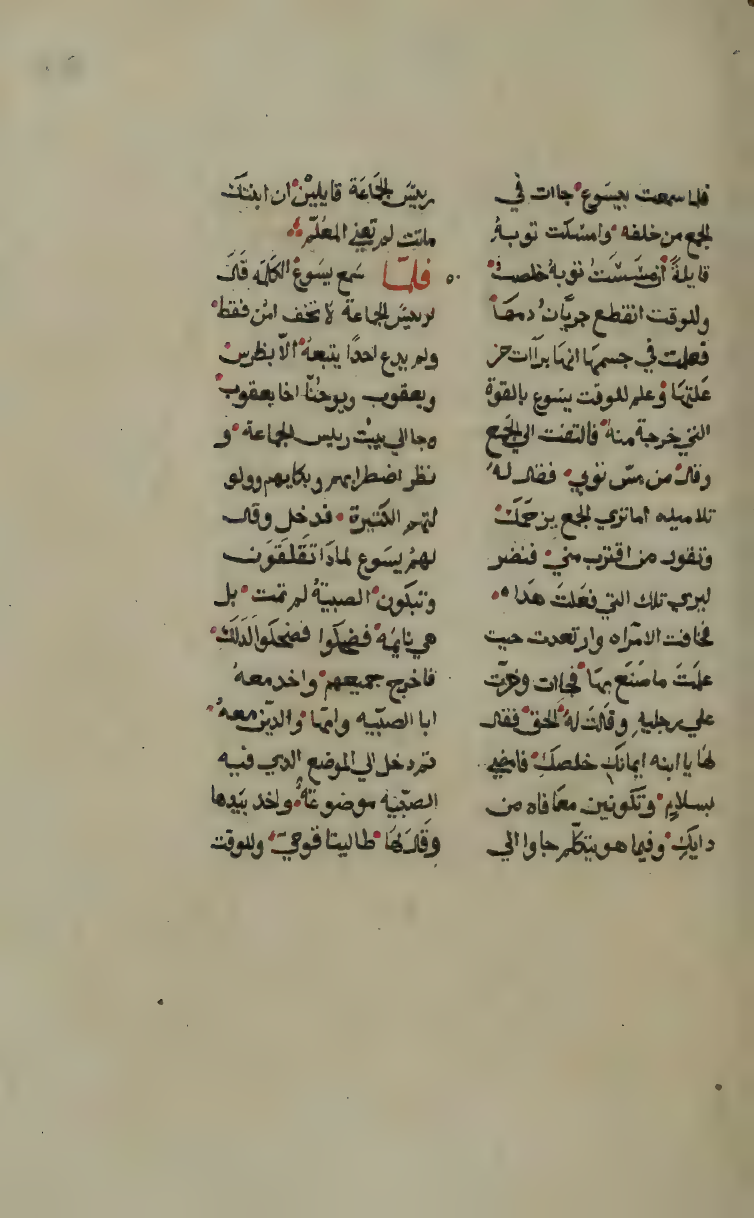 فلما سمعت بيسوع جاات في
الجمع من خلفه وامسكت ثوبهُ
قايلةً ان مسَسَتُ ثوبهُ خلصتُ
وللوقت انقطع جريَان دمهَا
فعلمت في جسمهَا انهَا برَاات من
علتهَا وعلم للوقت يسَوع بالقوة
التي خرجة منهُ فالتفت الي الجَمع
وقال من مسّ ثوبي فقال لهُ
تلاميده اما تري الجمع يزحمكَ
وتقول من اقترب مني فنضر
ليري تلك التي فعَلت هَدا
فخافت الامرَاه وارتعدت حيت
علمَت ما صُنَع بهَا فجاات وخرّت
علي رجليهِ وقالت لهُ الحق فقال
لهَا يا ابنه ايمانكِ خلصكِ فامضي
بسلامٍ وتكونين معَافاه من
دايكِ وفيما هو يتكلّم جاوا الي
ريسَ الجمَاعَة قايلينْ ان ابنتكَ
ماتت لم تعَني المعُلّم
فلمّا سَمع يسَوعُ الكلمَه قالَ
لريسَ الجماعة لا تخف امن فقط
ولم يدع احدًا يتبعهُ الّا بطرس
ويعقوب ويوحنّا اخا يعقوب
وجا الي بيت ريس الجماعة و
نظر اضطرابهم وبكايهم وولو
لتهم الكتيرة فدخل وقال
لهمُ يسَوع لمادَا تقلقوَن
وتبكون الصبيّةُ لم تمت بل
هي نايمَه فضحكوا فضحكوا لدلكَ
فاخرج جميعهم واخد معهُ
ابا الصبيّه وامّهَا والديّن معهُ
تم دخل الي الموضع الدي فيه
الصبيّه موضوعَهُ واخد بيَدها
وقالَ لهَا طاليتا قوميّ وللوقت